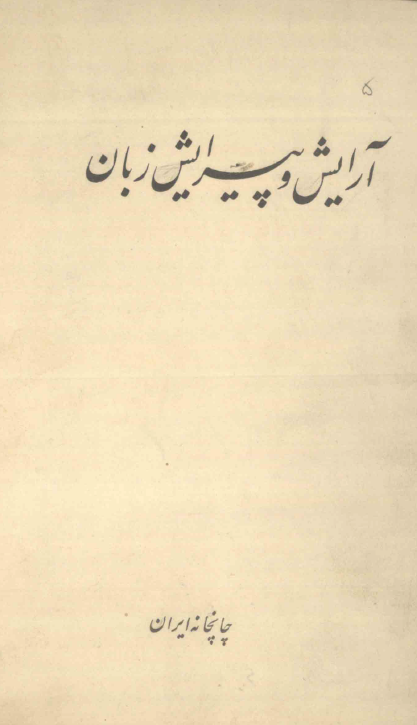 ۵
آرایش و پیرایش زبان
چاپخانه ایران